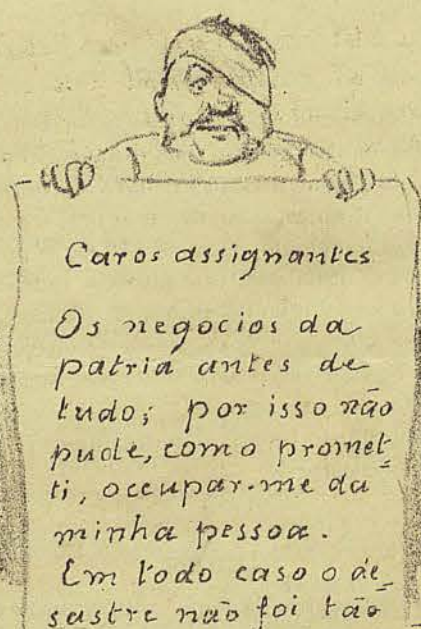 Caros assignantes
Os negocios da
patria antes de
tudo; por isso não
pude, como promet=
ti, occupar-me da
minha pessoa.
Em todo caso o de=
sastre não foi tão